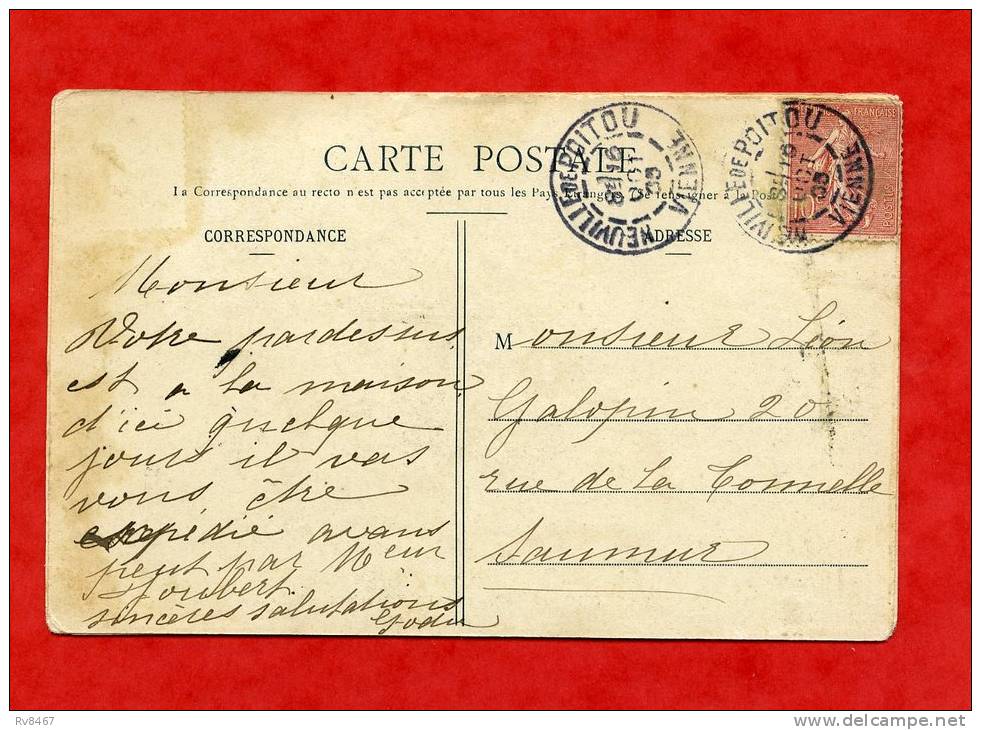 CARTE POSTALE
La Correspondance au recto n'est pas acceptée par tous les Pays Etrangers. (Se renseigner à la Poste)
CORRESPONDANCE
Monsieur
Votre pardessus
est a la maison
d'ici quelque
jours il vas
vous être
expédié avans
peut par Meur
Joubert
sincères salutations
Godin
ADRESSE
Monsieur Léon
Galopin 20
rue de la Tonnelle
Saumur
NEUVILLE DE POITOU
VIENNE
OCT
05
NEUVILLE DE POITOU
VIENNE
OCT
05
FRANÇAISE
POSTES
Rv8467
www.delcampe.net